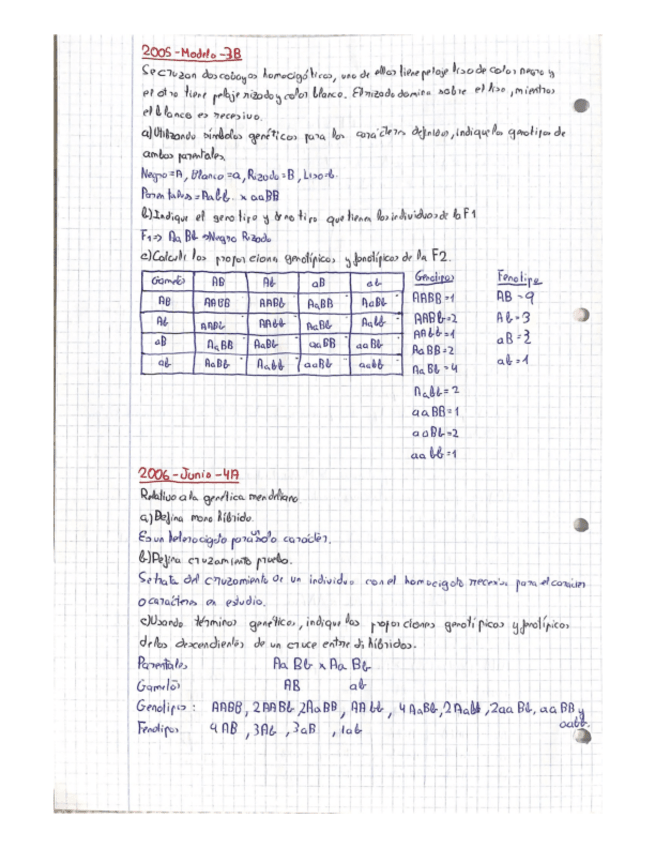 2005-Modelo-3B
Se cruzan dos cobayas homocigóticos, uno de ellos tiene pelaje liso de color negro y
el otro tiene pelaje rizado y color blanco. El rizado domina sobre el liso, mientras
el blanco es recesivo.
a) Utilizando símbolos genéticos para los caracteres definidos, indique los genotipos de
ambos parentales.
Negro=A, Blanco=a, Rizado=B, Liso=b.
Parentales= AAbb x aaBB
b) Indique el genotipo y fenotipo que tienen los individuos de la F1
F1 => Aa Bb => Negro Rizado
c) Calcule las proporciones genotípicas y fenotípicas de la F2.
Gametos AB Ab aB ab
AB AABB AABb AaBB AaBb
Ab AABb AAbb AaBb Aabb
aB AaBB AaBb aaBB aaBb
ab AaBb Aabb aaBb aabb
Genotipos
AABB=1
AABb=2
AAbb=1
AaBB=2
AaBb=4
Aabb=2
aaBB=1
aaBb=2
aabb=1
Fenotipo
AB=9
Ab=3
aB=3
ab=1
2006-Junio-4A
Relativo a la genética mendeliana
a) Defina mono híbrido.
Es un heterocigoto para un solo carácter.
b) Defina cruzamiento prueba.
Se trata del cruzamiento de un individuo con el homocigoto recesivo para el carácter
o caracteres en estudio.
c) Usando términos genéticos, indique las proporciones genotípicas y fenotípicas
de los descendientes de un cruce entre dihíbridos.
Parentales Aa Bb x Aa Bb
Gametos AB ab
Genotipos: AABB, 2AABb, 2AaBB, AAbb, 4AaBb, 2Aabb, 2aaBb, aaBB y
aabb.
Fenotipos 9AB, 3Ab, 3aB, 1ab